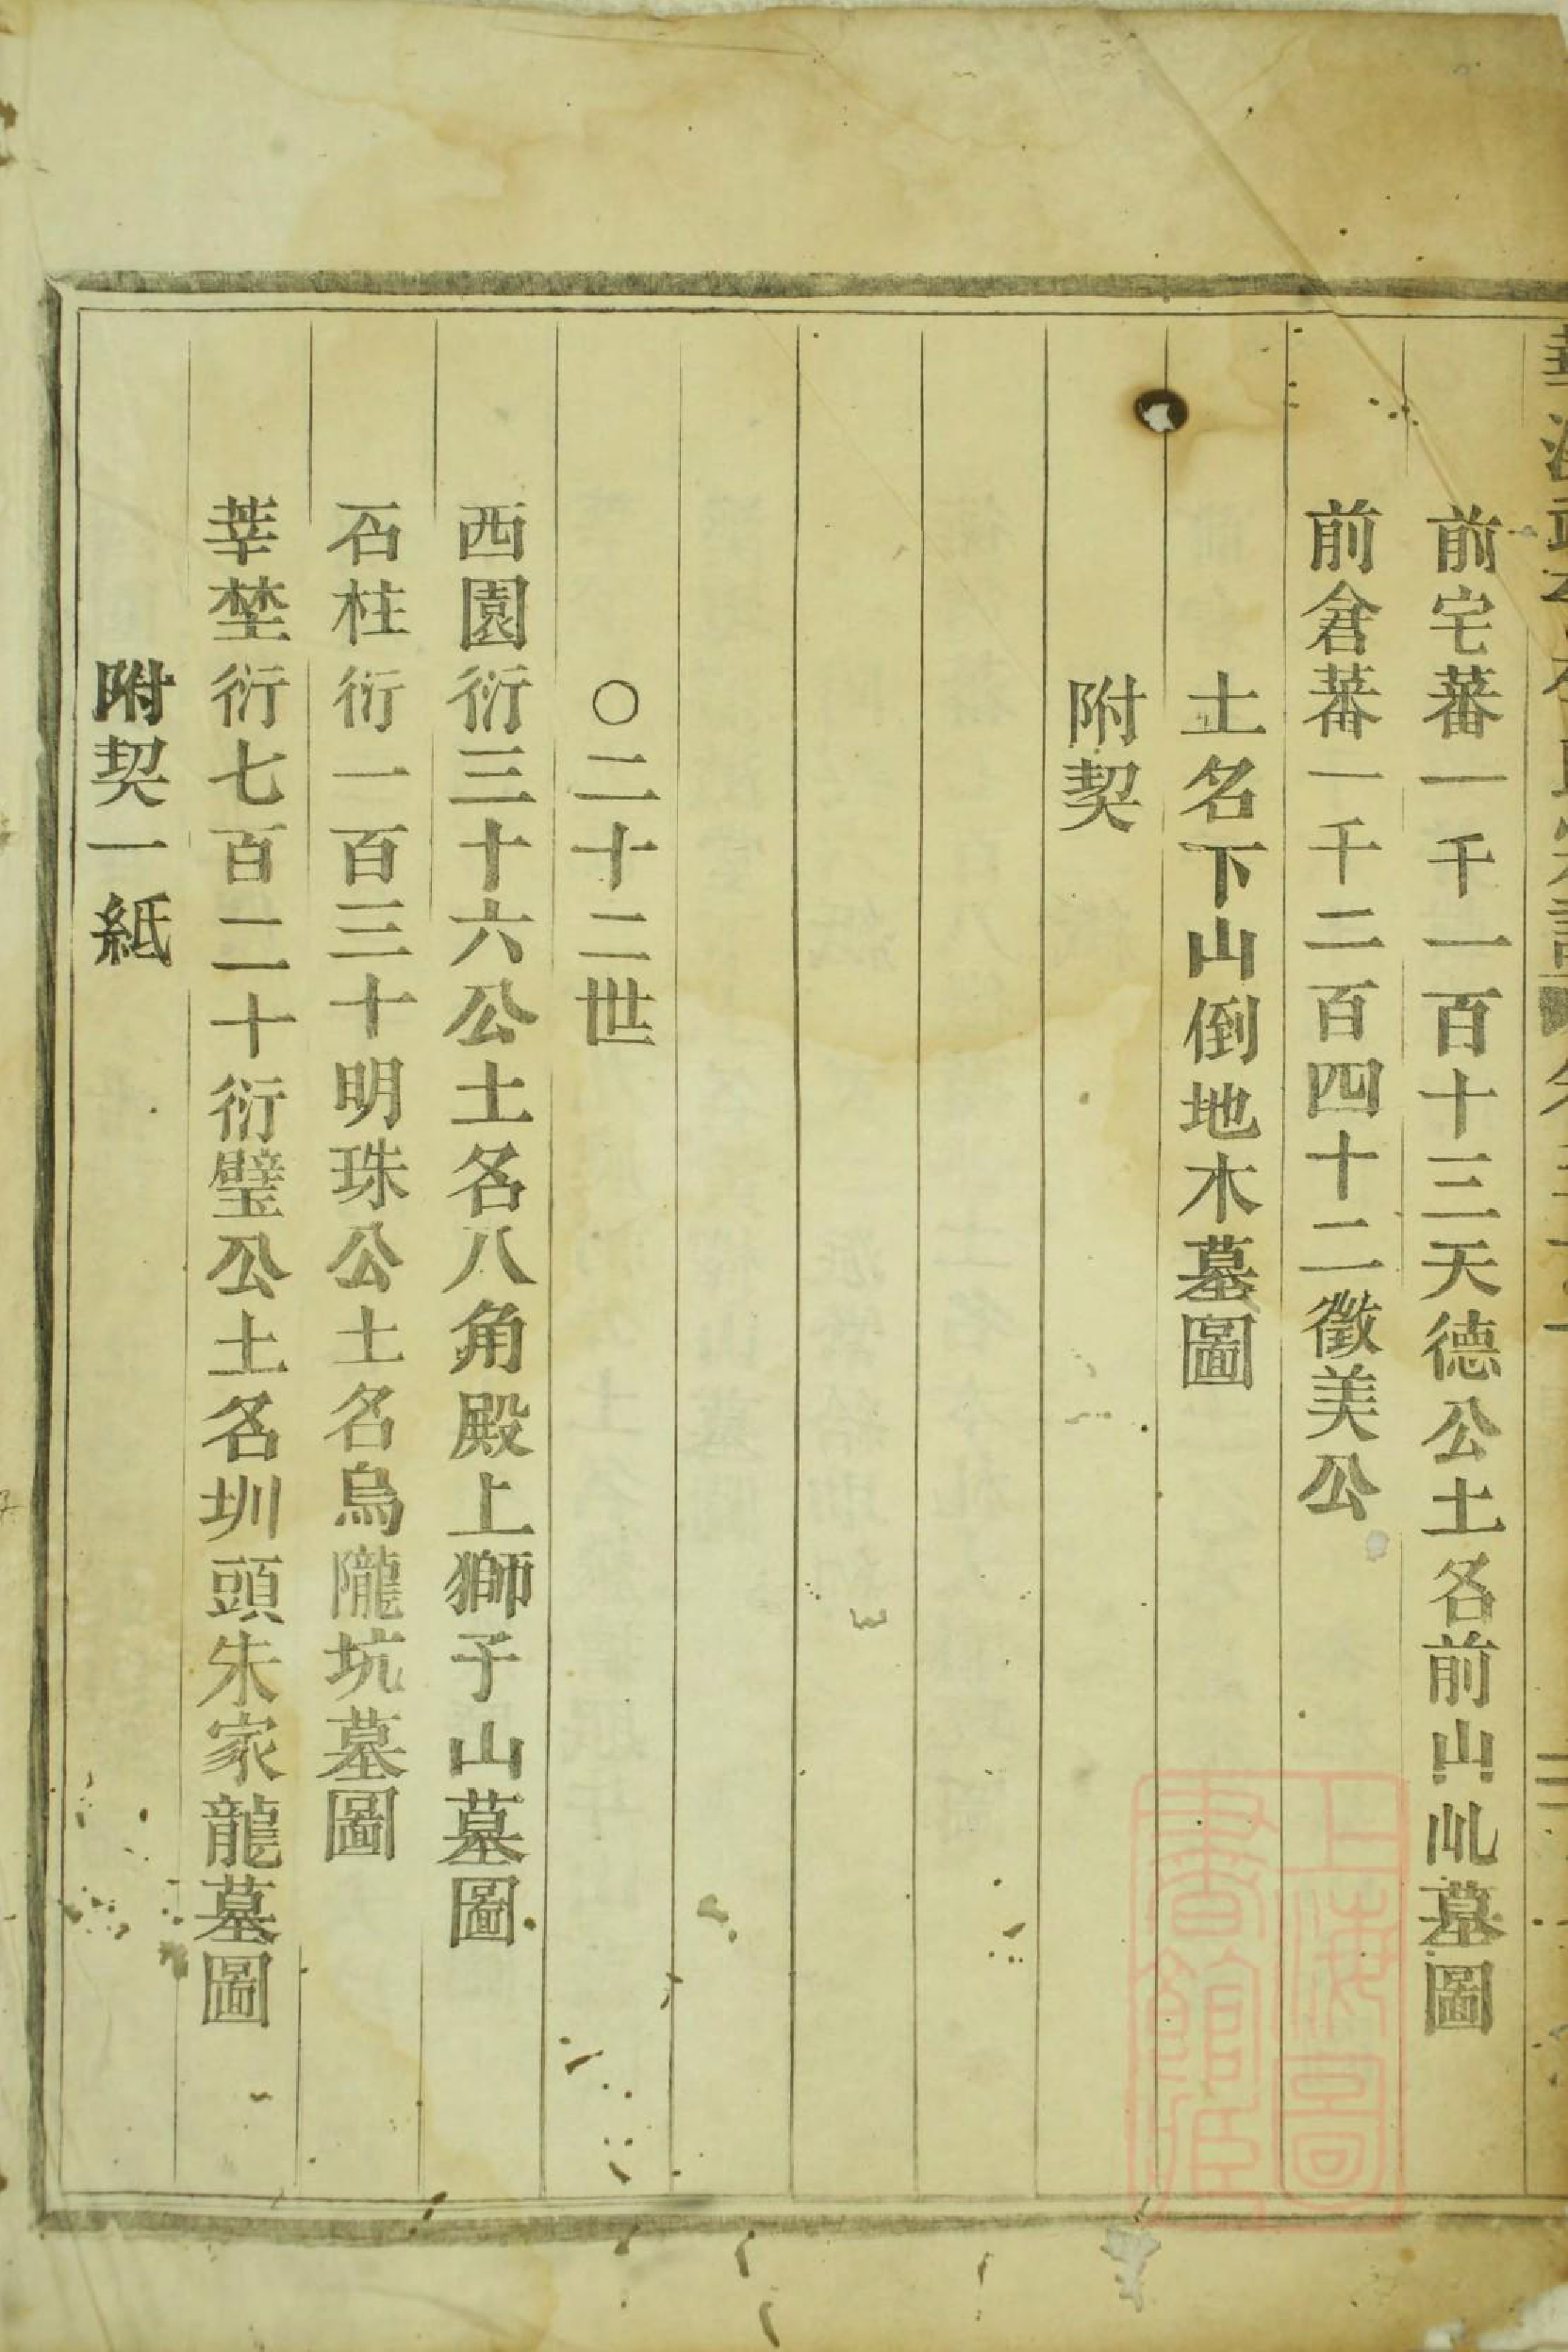 前宅蕃一千一百十三天德公土名前山乢墓圖
前倉蕃一千二百四十二徵美公
土名下山倒地木墓圖
附契
〇二十二世
西園衍三十六公土名八角殿上獅子山墓圖
石柱衍一百三十明珠公土名烏隴坑墓圖
莘埜衍七百二十衍璧公土名圳頭朱家龍墓圖
附契一紙
上海圖
書館藏